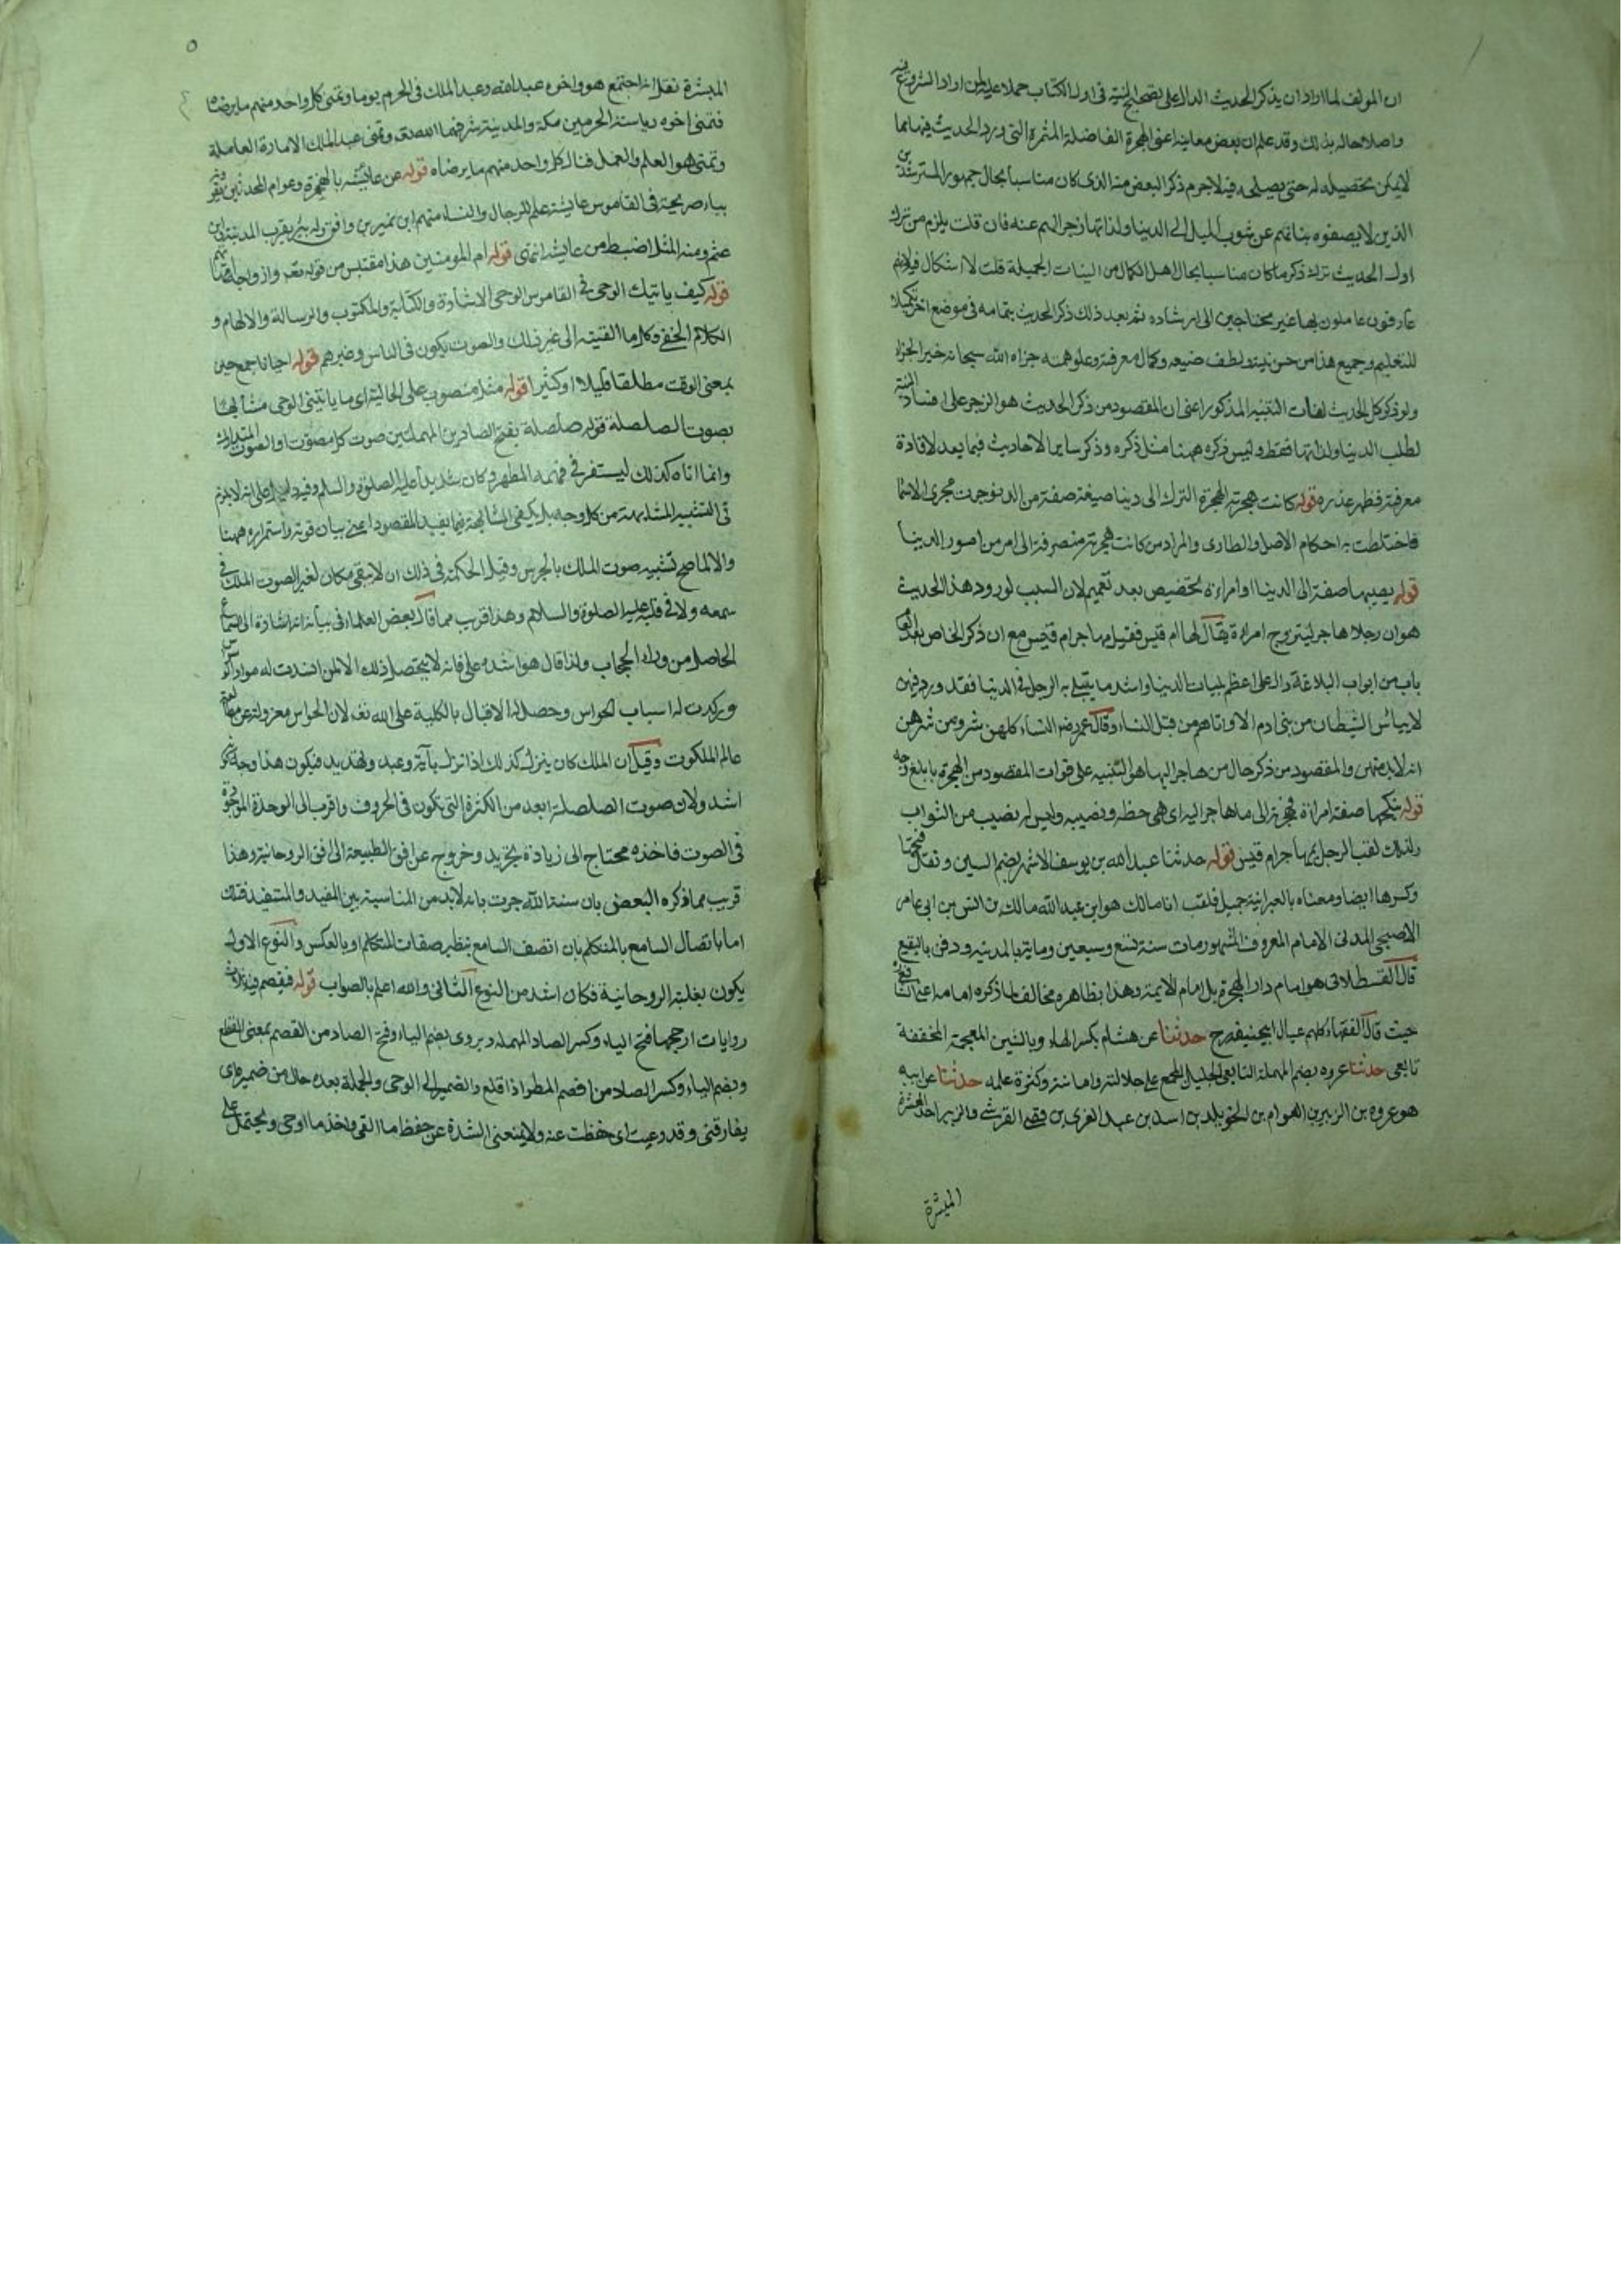 ان المولف لما اراد ان يذكر الحديث الدال على تصحيح النية فى اول الكتاب حملا على من اراد الشروع فيه
واصلاحا له بذلك وقد علم ان بعض معانيه اعنى الهجرة الفاضلة المثمرة التى ورد الحديث فيها مما
لا يمكن تحصيله له حتى يصلى فيه فلاجرم ذكر البعض منه الذى كان مناسبا بحال جمهور المسترشدين
الذين لا يصفوه نياتهم عن شوب الميل الى الدينا ولذاتها زجرا لهم عنه فان قلت يلزم من ترك
اول الحديث ترك ذكر ما كان مناسبا بحال اهل الكمال من النيات الجميلة قلت لا اشكال فيه لانهم
عارفون عاملون بها غير محتاجين الى ارشاده ثم بعد ذلك ذكر الحديث بتمامه فى موضع اخر تكميلا
للتعليم وجميع هذا من حسن نيته ولطف ضيعه وكمال معرفته وعلو همته جزاه الله سبحانه خير الجزاء
ولو ذكر كل الحديث لفات التنبيه المذكور اعنى ان المقصود من ذكر الحديث هو الزجر على افساد النية
لطلب الدينا ولذاتها فقط وليس ذكره ههنا مثل ذكره وذكر ساير الاحاديث فيما بعد لافادة
معرفته فظهر عذره قوله كانت هجرته الهجرة الترك الى دينا صيغة صفة من الدنو جرت مجرى الاسما
فاختلطت به احكام الاصل والطارى والمراد من كانت هجرته منصرفة الى امر من امور الدينا
قوله يصيبها صفة الى الدينا او امراءة تخصيص بعد تعميم لان السبب لورود هذا الحديث
هو ان رجلا هاجر ليتزوج امراءة يقال لها ام قيس فقيل مهاجر ام قيس مع ان ذكر الخاص بعد العام
باب من ابواب البلاغة دال على اعظم بليات الدينا واشد ما يبتلى به الرجل فى الدينا فقد ورد فيهن
لا ييائس الشيطان من بنى ادم الا واتاهم من قبل النساء وقال عمر رضه النساء كلهن شر ومن شرهن
انه لا بد منهن والمقصود من ذكر حال من هاجر اليها هو التنبيه على فوات المقصود من الهجرة بابلغ وجه
قوله ينكحها صفة امراءة فهجرته الى ما هاجر اليه اى هى حظه ونصيبه وليس له نصيب من الثواب
ولذلك لقب الرجل بمهاجر ام قيس قوله حدثنا عبد الله بن يوسف الاشهر بضم السين ونقل فتحها
وكسرها ايضا ومعناه بالعبرانية جميل فلقب انا مالك هو ابن عبد الله مالك بن انس بن ابى عامر
الاصبحى المدنى الامام المعروف المشهور مات سنة تسع وسبعين وماية بالمدينة ودفن بالبقيع
قال القسطلانى هو امام دار الهجرة بل امام الايمة وهذا بظاهره مخالف لما ذكره امامه اعنى الشافعى
حيث قال الفقهاء كلهم عيال ابيحنيفه رح حدثنا عن هشام بكسر الهاء وبالشين المعجمة المخففة
تابعى حدثنا عروه بضم المهملة التابعى الجليل المجمع على جلالته وامامته وكثرة علمه حدثنا عن ابيه
هو عروة بن الزبير بن العوام بن الخويلد بن اسد بن عبد العزى بن قصى القرشى والزبير احد العشرة
المبشرة
٥
المبشرة نقل انه اجتمع هو واخوه عبد الله وعبد الملك فى الحرم يوما وتمنى كل واحد منهم ما يرضاه
فتمنى اخوه رياستة الحرمين مكة والمدينة شرفهما الله وتمنى عبد الملك الامارة العاملة
وتمنى هو العلم والعمل فنال كل واحد منهم ما يرضاه قوله عن عائشه بالهمزة وعوام المحدثين يقرونه
بياء صريحة فى القاموس عايشة علم للرجال والنساء منهم ابن نمير بن واقف وله بئر بقرب المدينة ابن
عثم ومنه المثل اضبط من عايشة انتهى قوله ام المومنين هذا مقتبس من قوله تعه وازواجه امهاتهم
قوله كيف ياتيك الوحى فى القاموس الوحى الاشارة والكتابة والمكتوب والرسالة والالهام و
الكلام الخفى وكل ما القيته الى غيرك والصوت يكون فى الناس وغيرهم قوله احيانا جمع حين
بمعنى الوقت مطلقا قليلا او كثيرا قوله مثل منصوب على الحالية اى ما ياتينى الوحى مشابها
بصوت الصلصلة قوله صلصلة بفتح الصادين المهملتين صوت كل مصوت او الصوت المتدارك
وانما اتاه كذلك ليستقر فى فهمه المطهر وكان شديدا عليه الصلوة والسلم وفيه دليل على انه لا يلزم
فى التشبيه المشابهة من كل وجه بل يكفى المشابهة فيما يفيد المقصود اعنى بيان قوته واستمراره ههنا
والا لما صح تشبيه صوت الملك بالجرس وقيل الحكمة فى ذلك ان لا يبقى مكان لغير الصوت الملك فى
سمعه ولا فى قلبه عليه الصلوة والسلام وهذا قريب مما قال بعض العلماء فى بيانه انه اشارة الى السماع
الحاصل من وراء الحجاب ولذا قال هو اشده على فانه لا يحصل ذلك الا لمن انسدت له موارد الحواس
وركدت له اسباب الحواس وحصل له الاقبال بالكلية على الله تعه لان الحواس معزولة عن معاينة
عالم الملكوت وقيل ان الملك كان ينزل كذلك اذا نزل بآية وعيد وتهديد فيكون هذا وجه
اشد ولان صوت الصلصلة ابعد من الكثرة التى تكون فى الحروف واقرب الى الوحدة الموجودة
فى الصوت فاخذه محتاج الى زيادة تجريد وخروج عن افق الطبيعة الى افق الروحانية وهذا
قريب مما ذكره البعض بان سنة الله جرت بانه لا بد من المناسبة بين المفيد والمستفيد فتلك
اما باتصال السامع بالمتكلم بان اتصف السامع بصفات المتكلم او بالعكس والنوع الاول
يكون بغلبة الروحانية فكان اشد من النوع الثانى والله اعلم بالصواب قوله فيفصم فيه ثلاث
روايات ارجحها فتح الياء وكسر الصاد المهملة ويروى بضم الياء وفتح الصاد من الفصم بمعنى القطع
وبضم الياء وكسر الصاد من افصم المطر اذا اقلع والضمير الى الوحى والجملة بعده حال من ضميره اى
يفارقنى وقد وعيت اى حفظت عنه ولا يمنعنى الشدة عن حفظ ما القى واخذ ما اوحى ويحتمل على